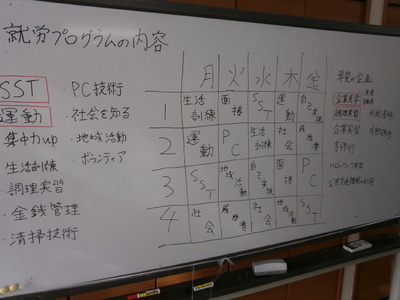 就労プログラムの内容
SST
運動
集中力up
生活訓練
調理実習
金銭管理
清掃技術
・PC技術
・社会を知る
・地域活動
・ボランティア
月 火 水 木 金
1 生活訓練 面接 SST 運動 自己実現
2 運動 PC 生活訓練 社会 履歴書
3 SST 地域活動 自己実現 面接 PC
4 社会 履歴書 社会 地域活動 SST
企業見学
調理実習
企業実習